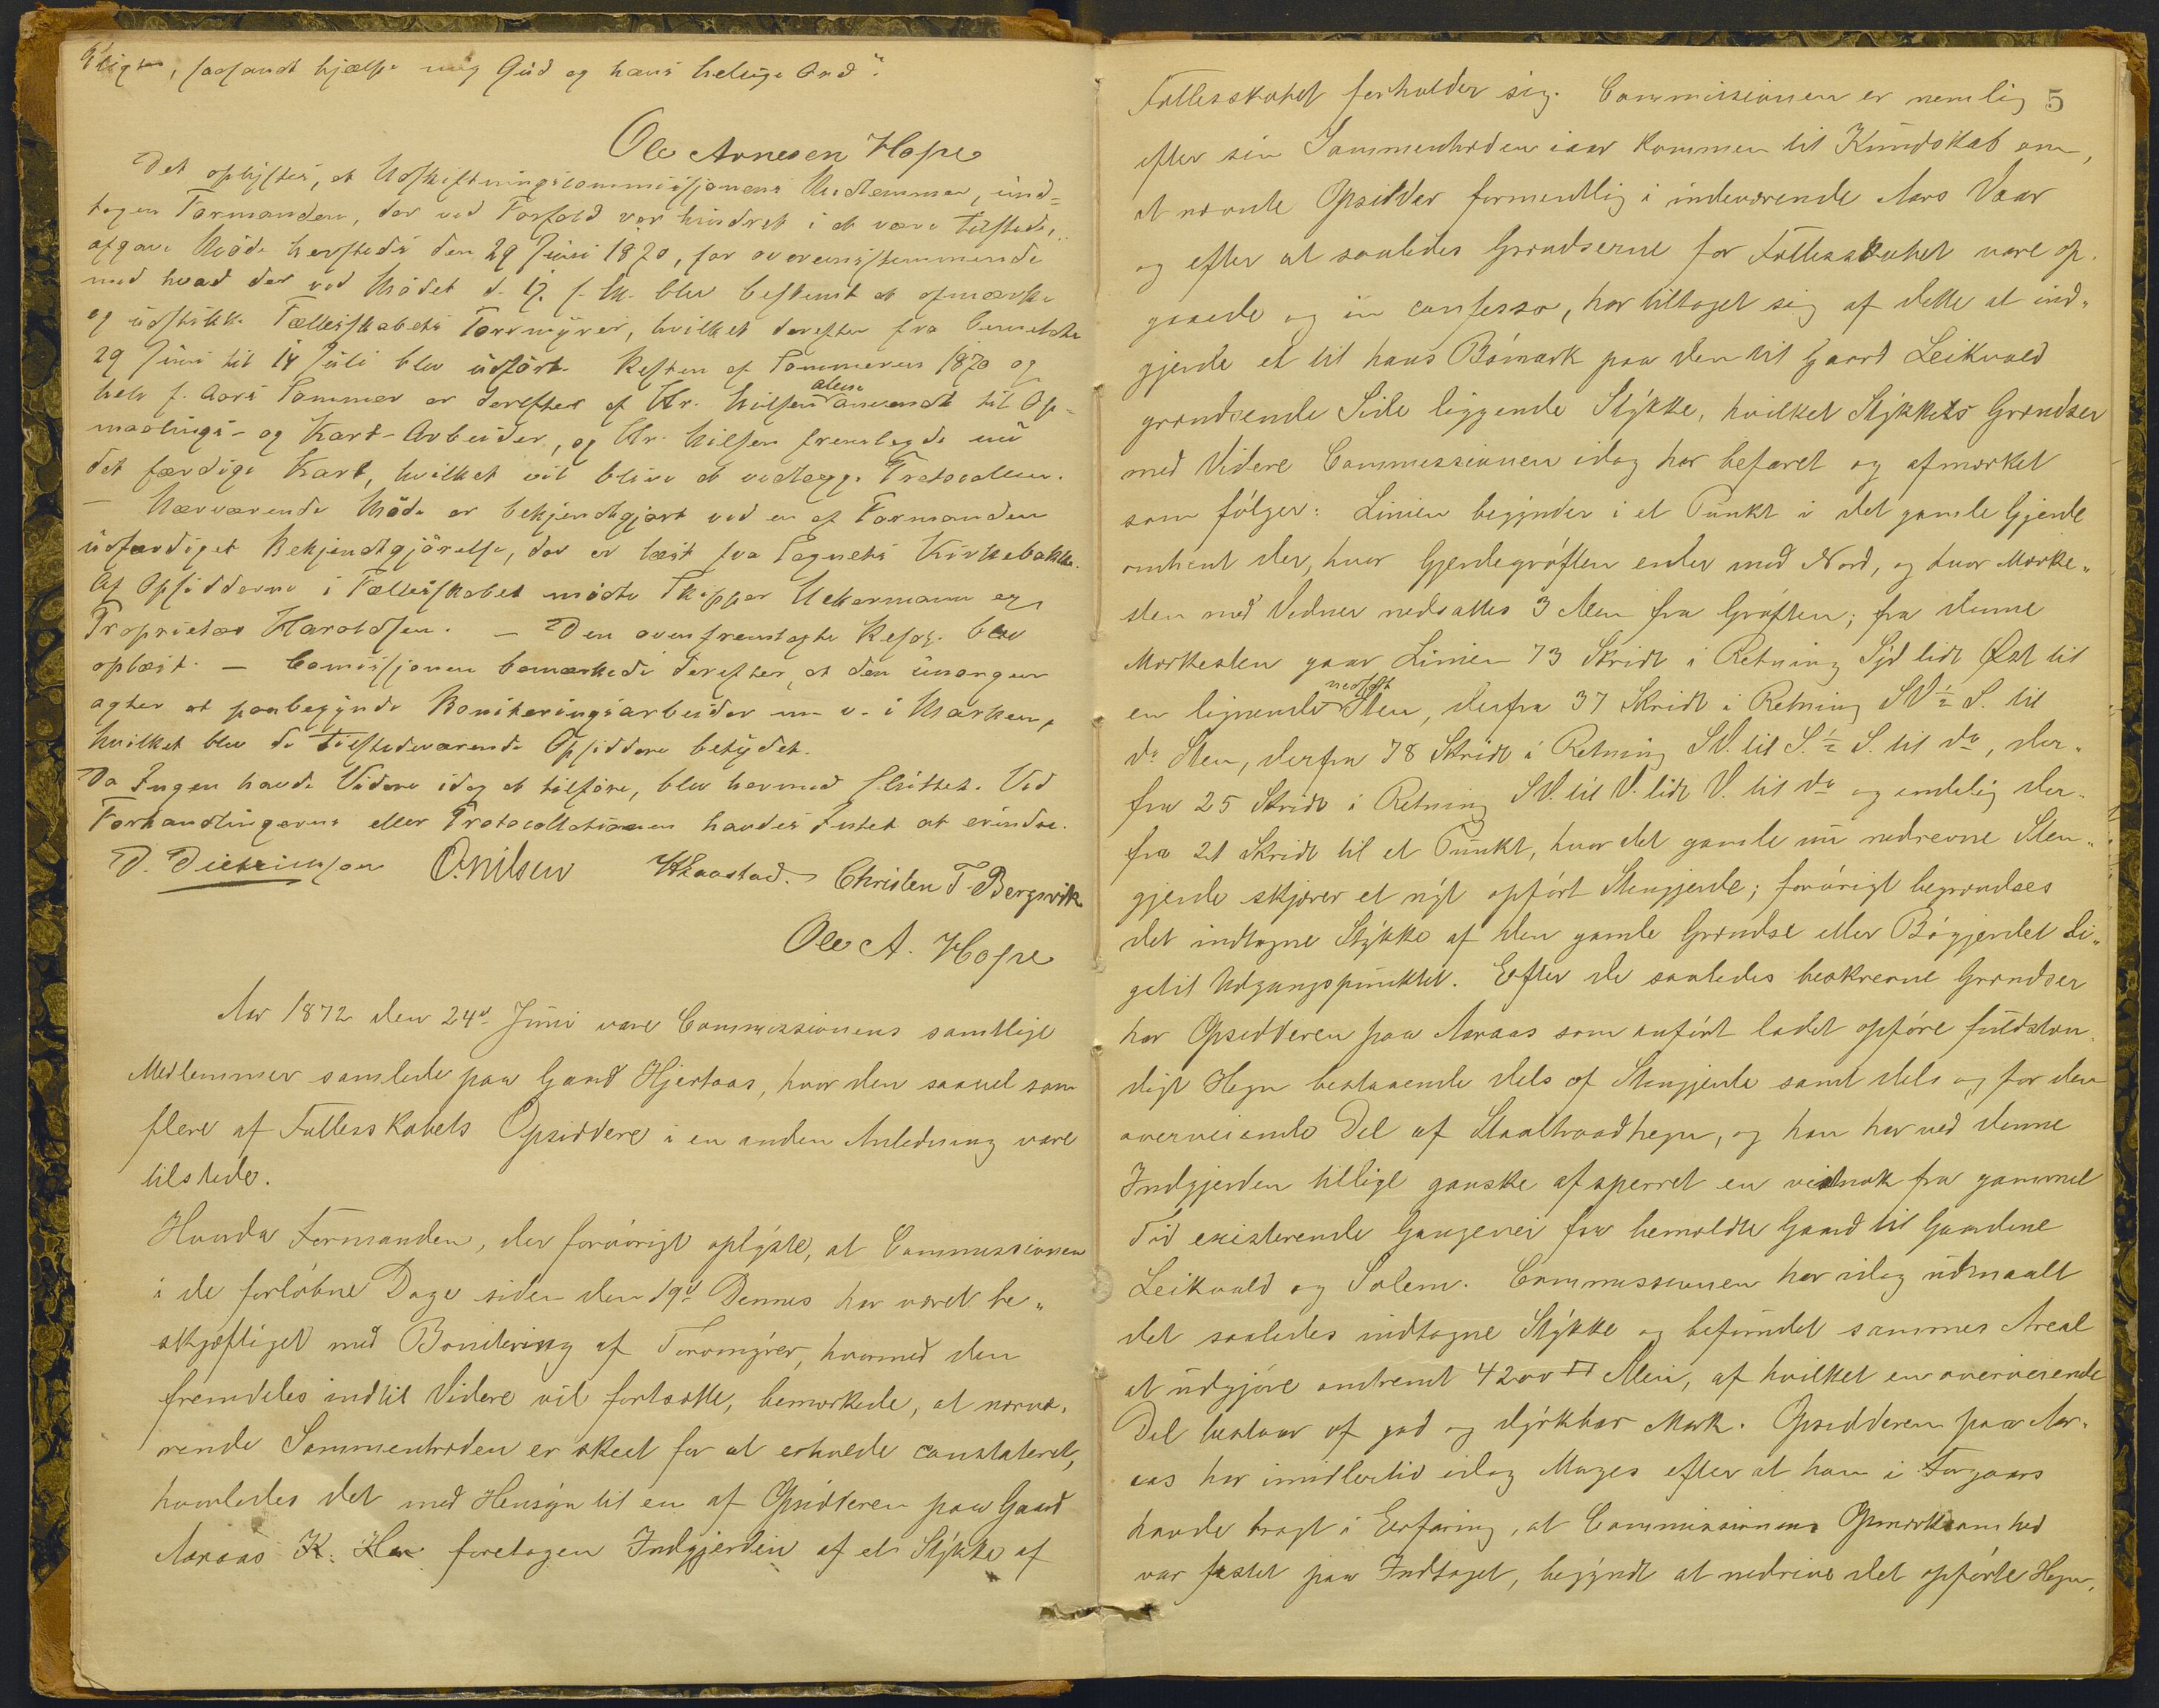 saasandt hjælpe mig Gud og hans hellige Ord".
Ole Arnesen Hope
Det oplystes, at Udskiftningscommissjonens Medlemmer, und=
tagen Formanden, der ved Forfald var hindret i at være tilstede,
afgave Møde hersteds den 29 Juni 1870, for overensstemmende
med hvad der ved Mødet d. 17 f. M. blev bestemt at opmærke
og udstikke Fællesskabets Torvmyrer, hvilket derefter fra bemeldte
29 Juni til 14 Juli blev udført. Resten af Sommeren 1870 og
hele f. Aars Sommer er derefter af Hr. Nilsen alene anvendt til Op=
maalings- og Kart-Arbeider, og Hr. Nilsen fremlagde nu
det færdige Kart, hvilket vil blive at vedlægge Protocollen.
— Nærværende Møde er bekjendtgjort ved en af Formanden
udfærdiget Bekjendtgjørelse, der er læst fra Sognets Kirkebakke.
Af Opsidderne i Fællesskabet mødte Skipper Uckermann og
Proprietær Haroldsen. — Den ovenfremlagte Resol. blev
oplæst. — Comissjonen bemærkede derefter, at den imorgen
agter at paabegynde Boniteringsarbeider m. v. i Marken,
hvilket blev de Tilstedeværende Opsiddere betydet.
Da Ingen havde Videre idag at tilføre, blev hermed sluttet. Ved
Forhandlingerne eller Protocollationen havdes Intet at erindre.
D. Diedrichsen O. Nilsen Christen T. Bergsvik
Ole A. Hope
Aar 1872 den 24d Juni vare Commissionens samtlige
Medlemmer samlede paa Gaard Hjertaas, hvor den saavel som
flere af Fællesskabets Opsiddere i en anden Anledning vare
tilstede.
Hvorda Formanden, der forøvrigt oplyste, at Commissionen
i de forløbne Dage siden den 19d Dennes har været be„
skjæftiget med Bonitering af Torvmyrer, hvormed den
fremdeles indtil Videre vil fortsætte, bemærkede, at nærvæ„
rende Sammentræden er skeet for at erholde constateret,
hvorledes det med Hensyn til en af Opsidderen paa Gaard
Aaraas K. Har foretagen Indgjerden af et Stykke af
5
Fællesskabet forholder sig. Commissionen er nemlig
efter sin Sammentræden iaar kommen til Kundskab om,
at nævnte Opsidder formentlig i indeværende Aars Vaar
og efter at saaledes Grændserne for Fællesskabet vare op„
gaaede og in confesso, har tiltaget sig af dette at ind„
gjerde et til hans Bømark paa den til Gaard Leikvold
grændsende Side liggende Stykke, hvilket Stykkes Grændser
med Videre Commissionen idag har befaret og afmærket
som følger: Linien begynder i et Punkt i det gamle Gjerde
omtrent der, hvor Gjerdegrøften ender mod Nord, og hvor Mærke„
sten med Vidner nedsattes 3 Alen fra Grøften; fra denne
Mærkesten gaar Linien 73 Skridt i Retning Syd lidt Øst til
en lignende nedsat Sten, derfra 37 Skridt i Retning SV ½ S. til
do Sten, derfra 78 Skridt i Retning SV. til S. ½ S. til do, der„
fra 25 Skridt i Retning SV. til V. lidt V. til do og endelig der„
fra 21 Skridt til et Punkt, hvor det gamle nu nedrevne Sten„
gjerde skjærer et nyt opført Stengjerde; forøvrigt begrændses
det indtagne Stykke af den gamle Grændse eller Bøgjerdet li„
getil Udgangspunktet. Efter de saaledes beskrevne Grændser
har Opsidderen paa Aaraas som anført ladet opføre fuldstæn„
digt Hegn bestaaende dels af Stengjerde samt dels og for den
overveiende Del af Staaltraadhegn, og han har ved denne
Indgjerden tillige ganske afsperret en vistnok fra gammel
Tid existerende Gangevei fra bemeldte Gaard til Gaardene
Leikvold og Solem. Commissionen har idag udmaalt
det saaledes indtagne Stykke og befundet sammes Areal
at udgjøre omtrent 4200 □ Alen, af hvilket en overveiende
Del bestaar af god og dyrkbar Mark. Opsidderen paa Aar„
aas har imidlertid idag Morges efter at han i Forgaars
havde bragt i Erfaring, at Commissionens Opmærksomhed
var fæstet paa Indtaget, begyndt at nedrive det opførte Hegn,